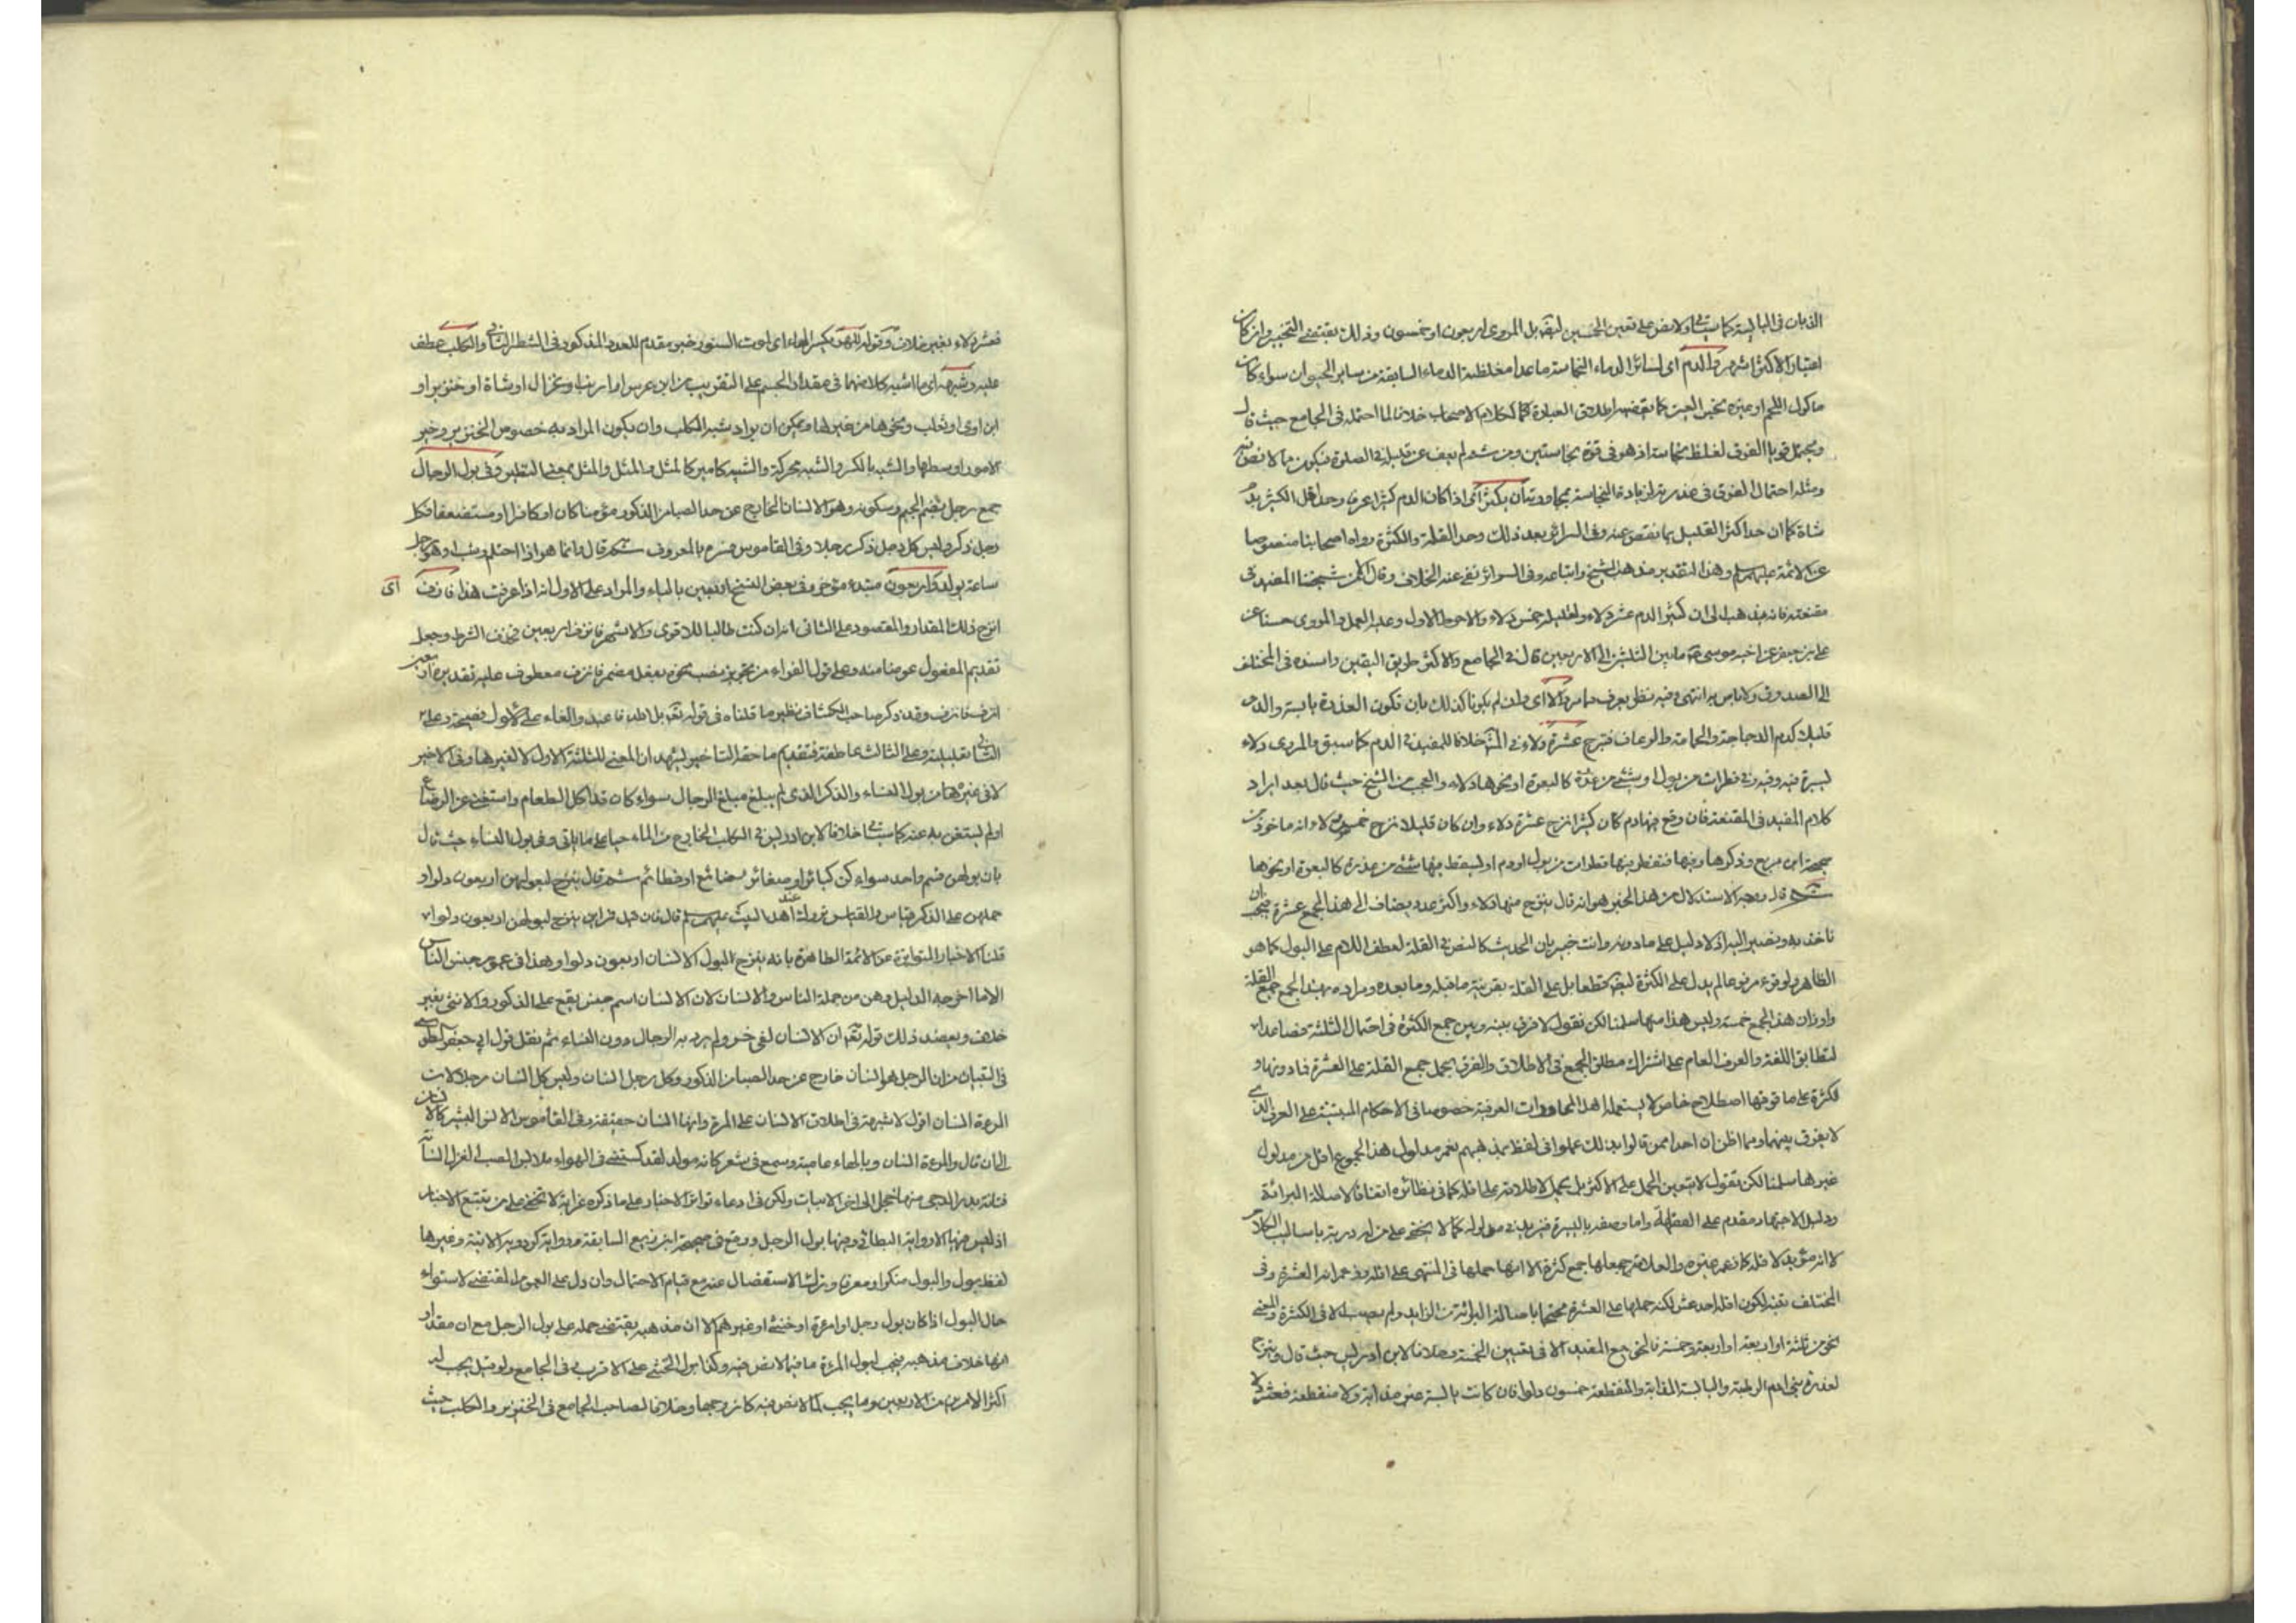 الذبان في اليابسة كما سيأتي ولا نص على تعين الخمسين ليقه بل المروي اربعون او خمسون وذلك يقتضي التخير وان كان
اعتبار الاكثر اشهر والدم اى لسائر الدماء النجاسة ما عدا مغلظة الدماء السابقة من ساير الحيوان سواء كان
ماكول اللحم او غيره نجس العين كما يقتضيه اطلاق العبارة كالكلام الاصحاب خلافا لما احتمله في الجامع حيث قال
ويحتمل قويا الفرق لغلظ نجاسته اذ هو في قوة نجاستين ومن ثم لم يعف عن قليله في الصلوة فيكون مما لا نص فيه
ومثله احتمال الفرق في عذرته لزيادة النجاسة بمجاورته ان يكثر اى اذا كان الدم كثيرا عرفا وحد اقل الكثير بدم
شاة كما ان حد اكثر القليل بما نقص عنه وفي السرائر بعد ذلك وحد القلة والكثرة رواه اصحابنا منصوصا
عن الائمة عليهم السلام وهذا التقدير مذهب الشيخ واتباعه وفي السرائر نفى عنه الخلاف وقال لكن شيخنا المفيد في
مقنعته فانه يذهب الى ان كثير الدم عشر دلاء ولقليله خمس دلاء والاحوط الاول وعليه العمل والمروي حسنا عن
على بن جعفر عن اخيه موسى ما بين الثلثين الى الاربعين قال في الجامع والاكثر طريق اليقين واسنده في المختلف
الى الصدوق ولا باس به انتهى وفيه نظر يعرف مما مر والا اى وان لم يكونا كذلك بان تكون العذرة يابسة والدم
قليلا كدم الدجاجة والحمامة والرعاف فنزح عشرة دلاء في المش خلافا للمفيد في الدم كما سبق والمروي دلاء
يسيرة فيه وفيه في قطرات من بول او شئ من عذرة كالبعرة او نحوها دلاء والعجب من الشيخ حيث قال بعد ايراد
كلام المفيد في المقنعة فان وقع فيها دم كان كثيرا نزح عشرة دلاء وان كان قليلا نزح خمس دلاء انه ماخوذ من
صحيحة ابن بزيع وذكرها وفيها فتقطر فيها قطرات من بول او دم او يسقط فيها شئ من عذرة كالبعرة او نحوها
ثم قال وجه الاستدلال من هذا الخبر هو انه قال ينزح منها دلاء واكثر عدد يضاف الى هذا الجمع عشرة فيجب ان
ناخذ به ونصير اليه اذ لا دليل على ما دونه وانت خبير بان الحديث كالنص في القلة لعطف اللام على البول كما هو
الظاهر ولوقوعه مرفوعا لم يدل على الكثرة ليقه قطعا بل على القلة بقرينة ما قبله وما بعده ومراده بهذا الجمع جمع القلة
واوزان هذا الجمع خمسة وليس هذا منها سلمنا لكن نقول لا فرق بينه وبين جمع الكثرة في احتمال الثلثة فصاعدا
لتطابق اللغة والعرف العام على اشتراك مطلق الجمع في الاطلاق والفرق بحمل جمع القلة على العشرة فما دونها و
الكثرة على ما فوقها اصطلاح خاص لا يستعمله اهل المحاورات العرفية خصوصا في الاحكام المبتنية على العرف الذي
لا يفرق بينهما وما اظن ان احدا ممن قالوا بذلك عملوا في لفظ يذهبهم نعم مدلول هذا الجموع اقل من مدلول
غيرها سلمنا لكن نقول لا يتعين الحمل على الاكثر بل يحمل لاطلاقه على اقله كما في نظائره اتفاقا لاصالة البرائة
ودليل الاجتهاد مقدم على الفقاهة واما وصفه باليسيرة فيزيد في مدلوله كما لا يخفى على من له دربة باساليب الكلام
لا انه مؤيد لاقله كما زعمه غيره والعلامة جعلها جمع كثرة الا انها حملها في المنتهى على اقله وزعم انه العشرة وفي
المختلف تنبه لكون اقله احد عشر لكنه حملها على العشرة محتجا باصالة البرائة من الزايد ولم يصب الا في الكثرة والمعنى
نحو من ثلثة او اربعة او اربعة وخمسة فالحق مع المفيد الا في تعيين الخمسة وخلافا لابن ادريس حيث قال وينزح
لعذرة بنى ادم الرطبة واليابسة المذابة والمتقطعة خمسون دلوا فان كانت يابسة غير مذابة ولا متقطعة فعشر دلاء
فعشر دلاء بغير خلاف وقوله للهر بكسر الهاء اى لموت السنور خبر مقدم للعدد المذكور في الشطر الثاني والكلب عطف
عليه وشبهه اى ما اشبه كلا منهما في مقدار الجسم على التقريب من ابن عرس او ارنب او غزال او شاة او خنزير او
ابن اوى او ثعلب ونحوها من غيرها ويمكن ان يراد شبه الكلب وان يكون المراد به خصوص الخنزير وخير
الامور اوسطها والشبه بالكسر والشبه محركة والشبيه كامير كالمثل والمثل والمثل بمعنى النظير وفي بول الرجال
جمع رجل بضم الجيم وسكونه وهو الانسان الخارج عن حد الصبا من الذكور مؤمنا كان او كافرا او مستضعفا فكل
رجل ذكر وليس كل رجل ذكر رجلا وفي القاموس فسره بالمعروف ثم قال وانما هو اذا احتلم وشب او هو رجل
ساعة يولد واربعون مبتدء مؤخر وفي بعض النسخ اربعين بالياء والمراد على الاول انه اذا عرفت هذا فانزف اى
انزح ذلك المقدار والمقصود على الثاني انه ان كنت طالبا للاقوى والاشهر فانزف اربعين فحذف الشرط وجعل
تقديم المفعول عوضا منه وعلى قول الفراء من تجويز نصب نحوه بفعل مضمر فانزف معطوف عليه تقديره اربعين
انزف فانزف وقد ذكر صاحب الكشاف نظير ما قلناه في قوله تعه بل الله فاعبد والفاء على الاول فصيحة وعلى
الثاني تعليلية وعلى الثالث عاطفة فتقديم ما حقه التاخير ليشهد ان المعنى للثلثة الاول لا لغيرها وفي الاخير
لا في غيرها من بول النساء والذكر الذى لم يبلغ مبلغ الرجال سواء كان قد اكل الطعام واستغنى عن الرضاع
او لم يستغن به عنه كما سيأتي خلافا لابن ادريس في الكلب الخارج من الماء حيا على ما ياتي وفي بول النساء حيث قال
بان بولهن قسم واحد سواء كن كبائر او صغائر رضائع او فطائم ثم قال ينزح لبولهن اربعون دلوا و
حملهن على الذكر قياس والقياس متروك عند اهل البيت عليهم السلام قال فان قيل فمن اين ينزح لبولهن اربعون دلوا
قلنا الاخبار المتواترة عن الائمة الطاهرة بانه ينزح لبول الانسان اربعون دلوا وهذا في عموم جنس الناس
الا ما اخرجه الدليل وهن من جملة الناس والانسان لان الانسان اسم جنس يقع على الذكور والانثى بغير
خلاف ويعضد ذلك قوله تعه ان الانسان لفي خسر ولم يرد به الرجال دون النساء ثم نقل قول ابي جعفر الطوسي
في التبيان من ان الرجل هو انسان خارج عن حد الصبا من الذكور وكل رجل انسان وليس كل انسان رجلا لان
المرءة انسان اقول لا شبهة في اطلاق الانسان على المرءة وانها انسان حقيقة وفي القاموس الانس البشر كالانسان
الى ان قال والمرءة انسان وبالهاء عامية وسمع في شعر كانه مولد لقد كستني في الهوى ملابس الصب الغزل انسانة
فتانة بدر الدجى منها خجل الى اخر الابيات ولكن في ادعاء تواتر الاخبار على ما ذكره غرابة لا تخفى على من يتتبع الاخبار
اذ ليس فيها الا رواية البطائني وفيها بول الرجل ووقع في صحيحة ابن بزيع السابقة ورواية كردويه الاتية وغيرها
لفظ بول والبول منكرا ومعرفا وترك الاستفصال عنه مع قيام الاحتمال وان دل على العموم المقتضى لاستواء
حال البول اذا كان بول رجل او امرءة او خنثى او غيرهم الا ان مذهبه يقتضى حمله على بول الرجل مع ان مقدار
انها خلاف مذهبه فيجب لبول المرءة ما فيما لا نص فيه وكذا بول الخنثى على الاقرب في الجامع ولو قيل يجب له
اكثر الامرين من الاربعين وما يجب لما لا نص فيه كان وجيها وخلافا لصاحب الجامع في الخنزير والكلب حيث